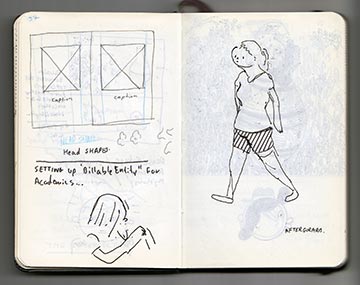 caption
caption
HEAD SHAPES
Head SHAPES.
SETTING up "Billable Entity" For
Academics...
AFTER GIRARD.